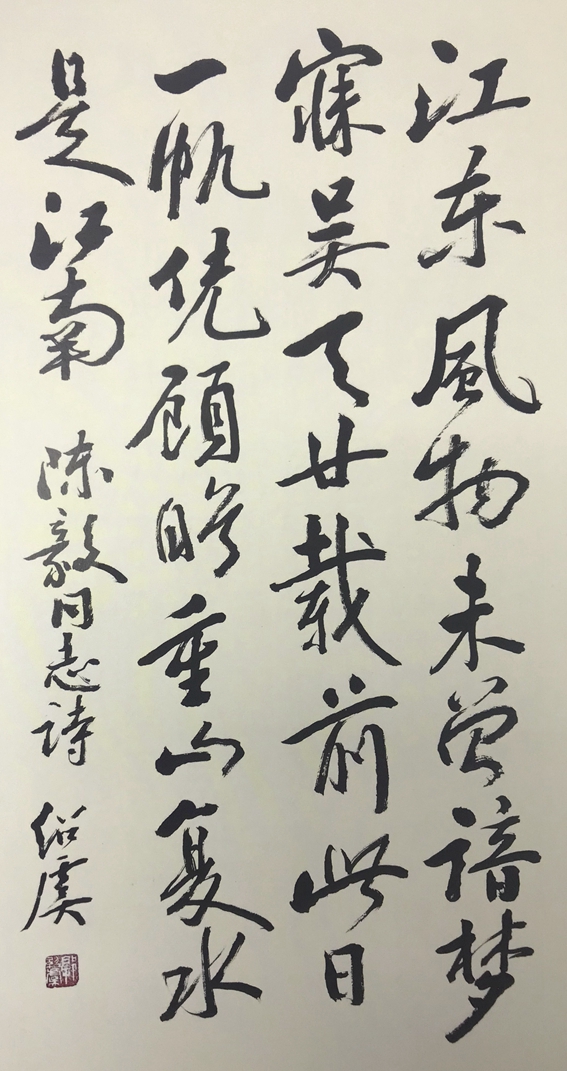 江东風物未曾諳梦
寐吴天廿載前此日
一帆凭顾盼重山复水
是江南 陈毅同志詩 绍虞